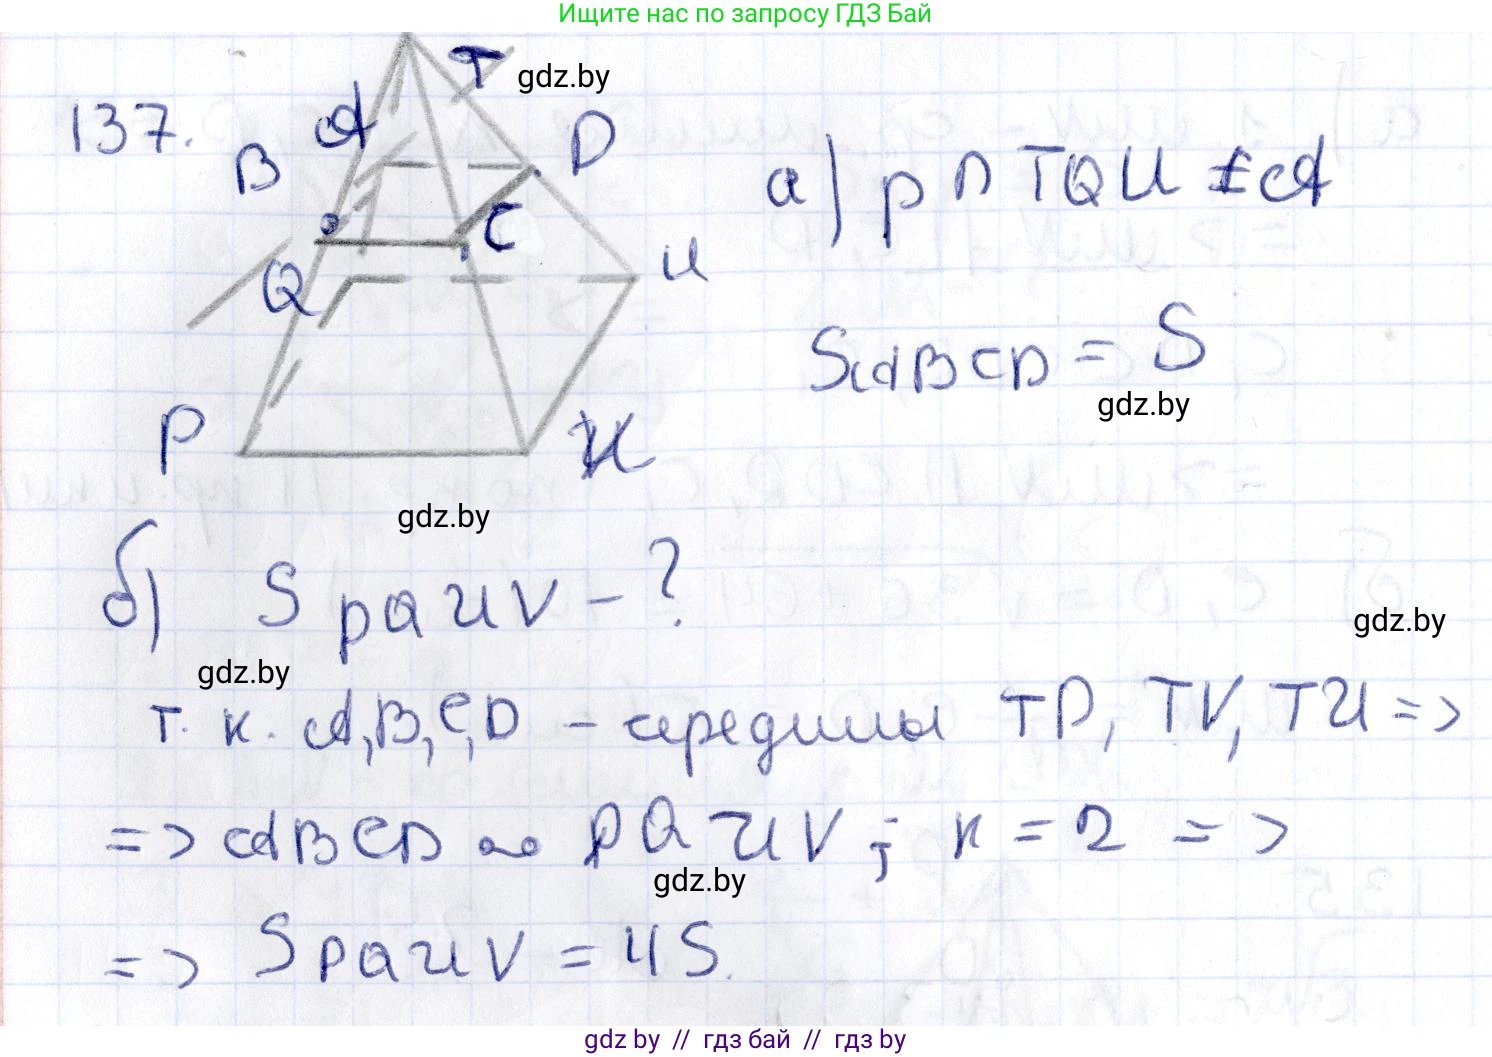 Ищите нас по запросу ГДЗ Бай
137.
T
gdz.by
A
B
D
C
Q
U
P
а) p ∩ TQU = A
S ABCD = S
gdz.by
gdz.by
б) S PQUV - ?
gdz.by
gdz.by
т. к. A, B, C, D - середины TP, TV, TU =>
=> ABCD ∾ PQUV ; к = 2 =>
gdz.by
=> S PQUV = 4S.
gdz.by // гдз бай // гдз by